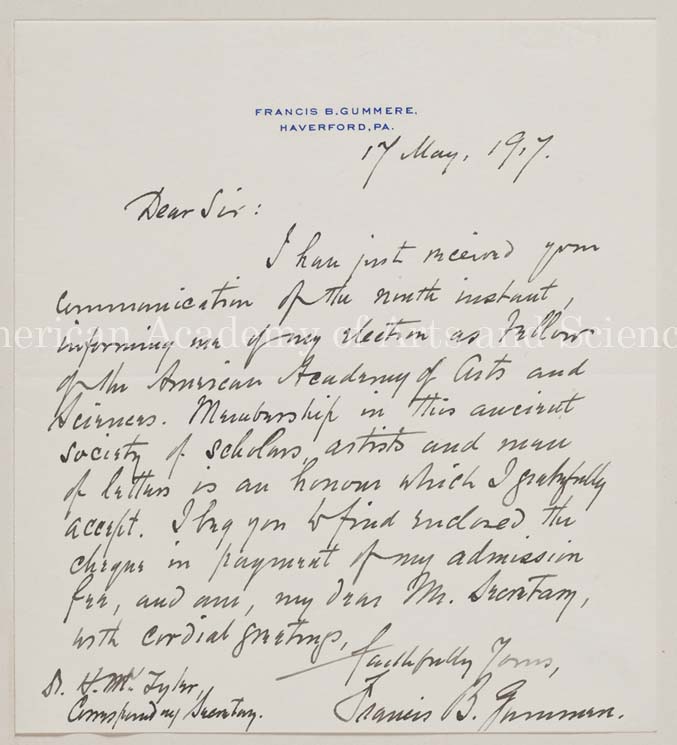 FRANCIS B. GUMMERE,
HAVERFORD, PA.
17 May, 1917.
Dear Sir:
I have just received your
communication of the ninth instant,
informing me of my election as Fellow
of the American Academy of Arts and
Sciences. Membership in this ancient
society of scholars, artists and men
of letters is an honour which I gratefully
accept. I beg you to find enclosed the
cheque in payment of my admission
fee, and am, my dear Mr. Secretary,
with cordial greetings,
Faithfully Yours,
Francis B. Gummere.
Dr. H. W. Tyler,
Corresponding Secretary.
American Academy of Arts and Scienc